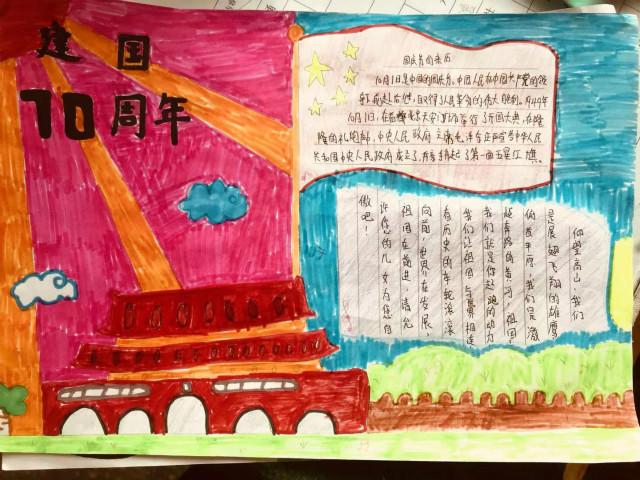 建国
70周年
国庆节的来历
10月1日是中国的国庆节。中国人民在中国共产党的领
前赴后继,取得了人民革命的伟大胜利。1949年
10月1日,在首都北京天安门广场举行了开国大典,在隆
隆的礼炮声中,中央人民政府主席毛泽东庄严宣告中华人民
共和国中央人民政府成立了,升起了第一面五星红旗。
仰望高山,我们
是展翅飞翔的雄鹰
俯首平原,我们是
奔腾的黄河,祖国
我们就是你起跑的动力
我们让祖国与世界相连
看历史的车轮滚滚
向前,世界在发展,
祖国在前进,请允
许您的儿女为您自
傲吧!